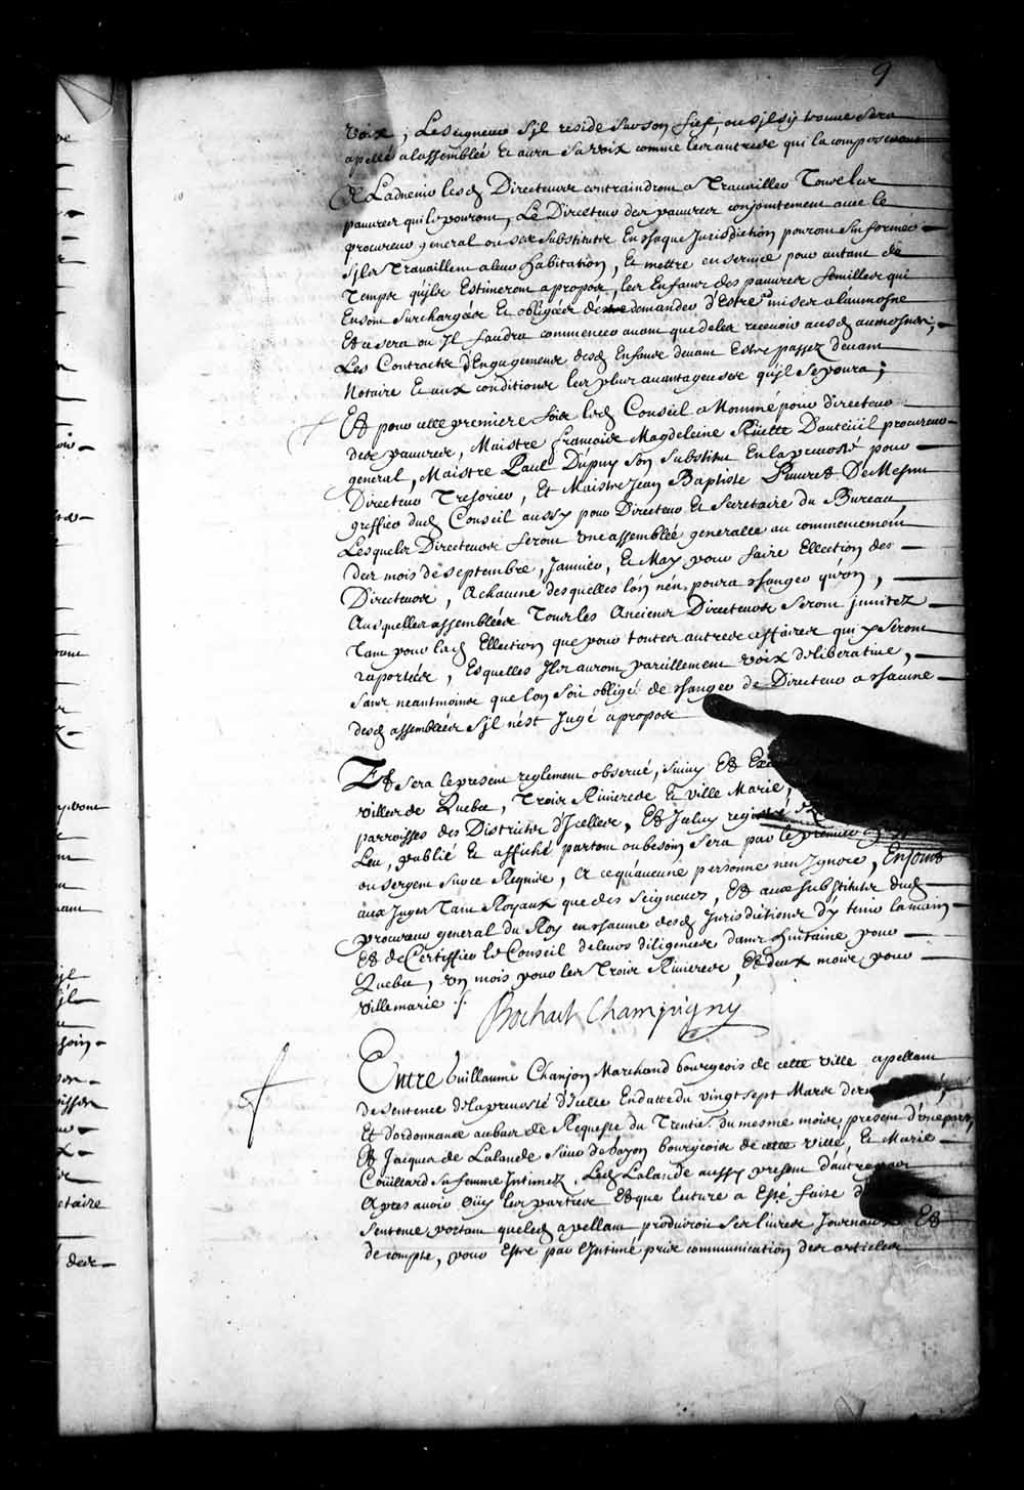 9
voix, Le Seigneur s'jl reside sur son fief, ou s'jl s'ÿ trouue sera
apellé a lassemblée Et aura sa voix comme les autres qui la composeront
Et Laduenir lesd. Directeurs contraindront a Trauailler Tous les
pauures qui le pouront, Le Directeur des pauures conjointement auec le
procureur general ou ses substituts En chaque Jurisdiction pouront s'informer
s'jls Trauaillent a leur habitation, Et mettre en seruice pour autant de
Temps qu'jls Estimeront a propos, les Enfants des pauures familles qui
En sont surchargées Et obligées de demander d'Estre mises a l'aumosne
Et a sera ou Jl faudra commencer auant que de les receuoir ausd. aumosnes;
Les Contracts d'Engagements desd. Enfans deuant Estre passez deuant
Notaire Et aux conditions les plus auantageuses qu'jl se poura;
Et pour cette premiere fois led. Conseil a Nommé pour directeur
des pauures, Maistre françois Magdeleine Rüette Dauteüil procureur
general, Maistre Paul Dupuy son substitut En la preuosté pour
Directeur Tresorier, Et Maistre Jean Baptiste Peuuret De Mesnu
greffier dud. Conseil aussy pour Directeur Et Secretaire du Bureau
Lesquels Directeurs feront vne assemblée generalle au commencement
des mois de septembre, Januier, Et May pour faire Ellection des
Directeurs, a chacune desquelles l'on n'en poura changer qu'vn,
Ausquelles assemblées Tous les Anciens Directeurs seront jnuitez
Tant pour lad. Ellection que pour toutes autres affaires qui y seront
raportées, Esquelles Jls auront pareillement voix deliberatiue,
sans neantmoins que lon soit obligé de changer de Directeur a chacune
desd. assemblées s'jl n'est Jugé a propos
Et sera le present reglement obserué, suiuy Et
villes de Quebec, Trois Riuieres Et ville Marie,
parroisses des Districts d'Jcelles, Et Jceluy registré
Leu, publié Et affiché partout ou besoin sera par le premier
ou sergent sur ce Requis, a ce qu'aucune personne n'en Jgnore, Enjoint
aux Juges Tant Royaux que des Seigneurs, Et aux substituts dud.
procureur general du Roy en chacune desd. Jurisdictions d'y tenir la main
Et de Certiffier le Conseil de leurs diligences dans huitaine pour
Quebec, vn mois pour les Trois Riuieres, Et deux mois pour
villemarie ./.
Bochart Champigny
Entre Guillaume Chanjon Marchand bourgeois de cette ville apellant
de sentence de la preuosté d'Jcelle En datte du vingt sept Mars
Et d'ordonnance au bas de Requeste du Trentie. du mesme mois, present d'vne part
Et Jacques de Lalande sieur de Gayon bourgeois de cette ville, Et Marie
Coüillard sa femme Jntimez, Led. Lalande aussy present d'autre part
Apres auoir oüy les parties Et que lecture a Esté faite
sentence portant que led. apellant produiroit ses liures Journaux Et
de compte, pour Estre par l'Jntimé pris communication des articles